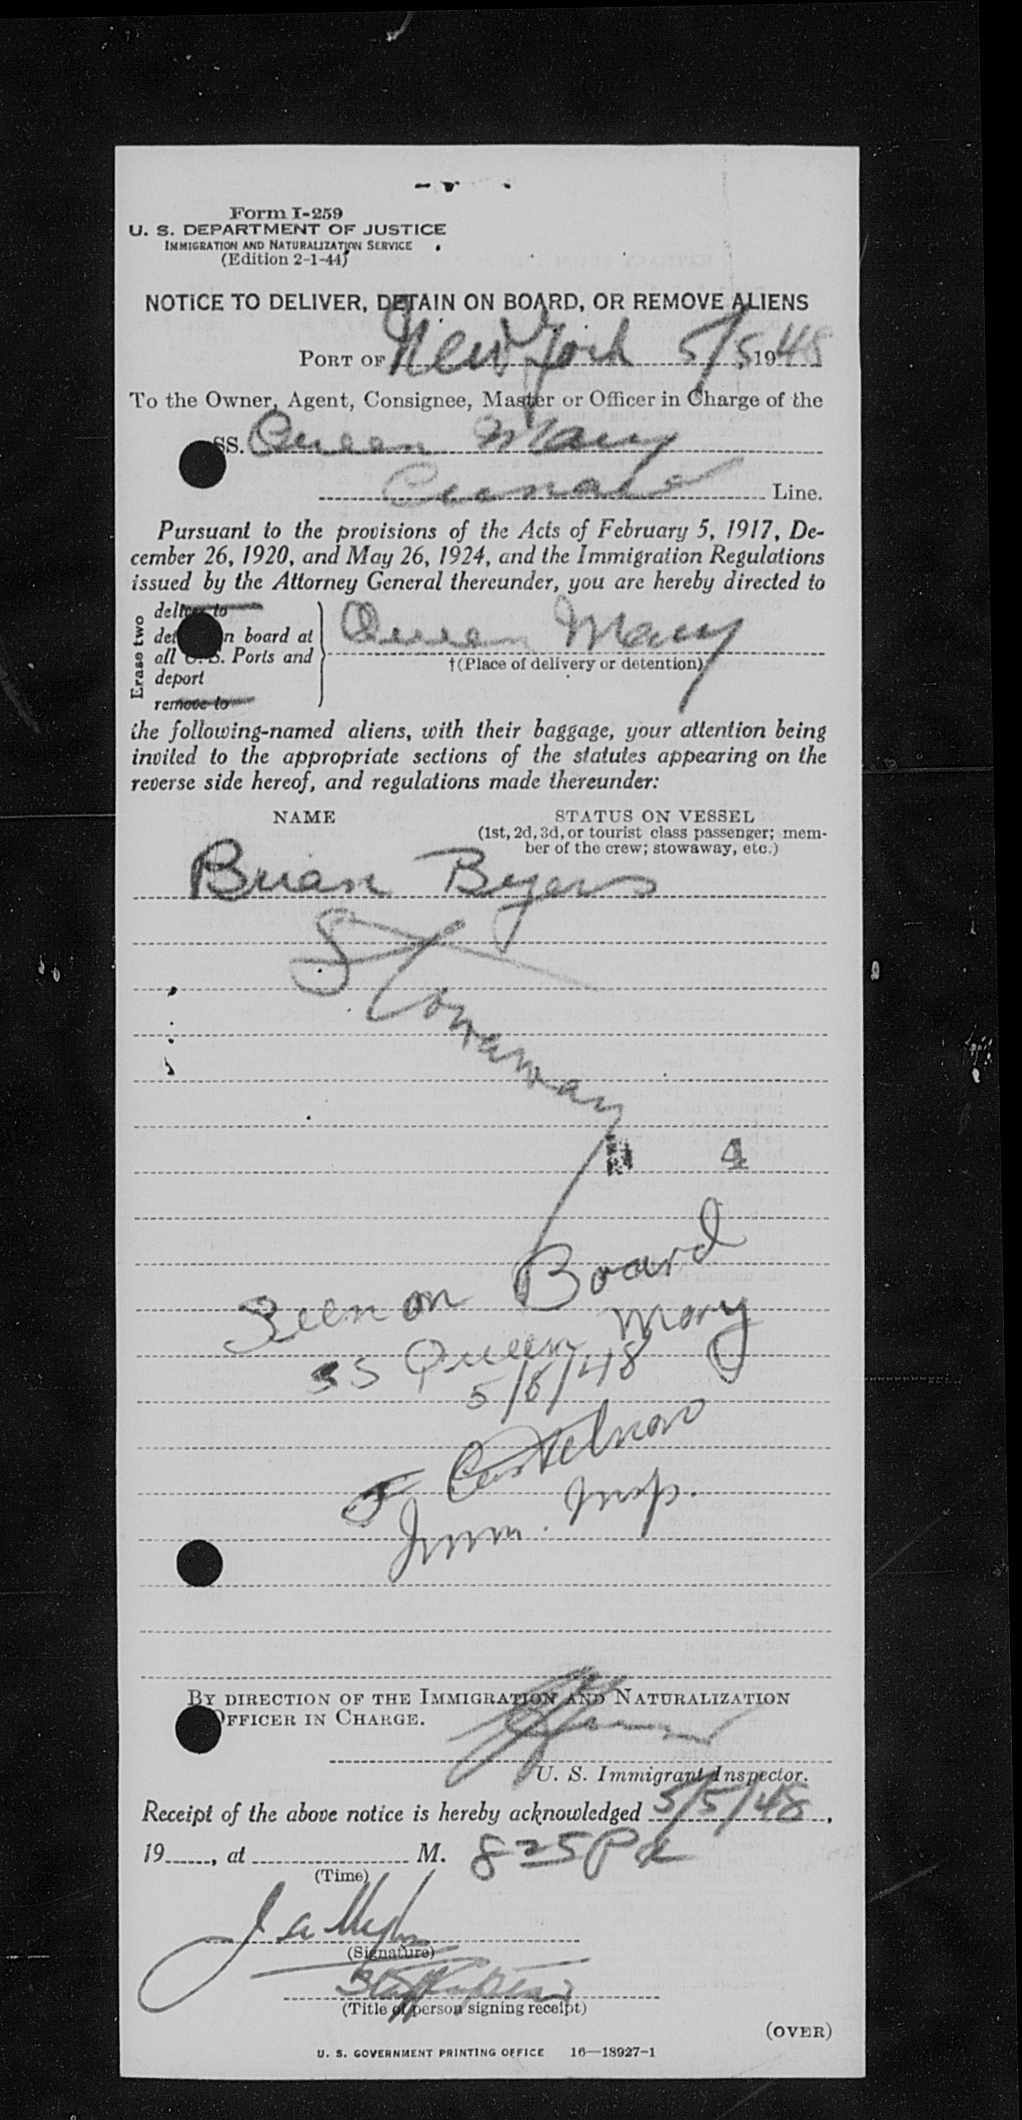 Form I-259
U. S. DEPARTMENT OF JUSTICE
IMMIGRATION AND NATURALIZATION SERVICE
(Edition 2-1-44)
NOTICE TO DELIVER, DETAIN ON BOARD, OR REMOVE ALIENS
PORT OF New York 5/5, 1948
To the Owner, Agent, Consignee, Master or Officer in Charge of the
SS. Queen Mary
Cunard Line.
Pursuant to the provisions of the Acts of February 5, 1917, De-
cember 26, 1920, and May 26, 1924, and the Immigration Regulations
issued by the Attorney General thereunder, you are hereby directed to
Erase two
deliver to
n board at
all U. S. Ports and
deport
remove to
Queen Mary
†(Place of delivery or detention)
the following-named aliens, with their baggage, your attention being
invited to the appropriate sections of the statutes appearing on the
reverse side hereof, and regulations made thereunder:
NAME STATUS ON VESSEL
(1st, 2d, 3d, or tourist class passenger; mem-
ber of the crew; stowaway, etc.)
Brian Byers
Stowaway
4
Seen on Board
SS Queen Mary
5/6/48
Imm. Insp.
BY DIRECTION OF THE IMMIGRATION AND NATURALIZATION
OFFICER IN CHARGE.
U. S. Immigrant Inspector.
Receipt of the above notice is hereby acknowledged 5/5/48,
19____, at ____ M. 825 P
(Time)
(Signature)
Staff Captain
(Title of person signing receipt)
(OVER)
U. S. GOVERNMENT PRINTING OFFICE 16—18927-1